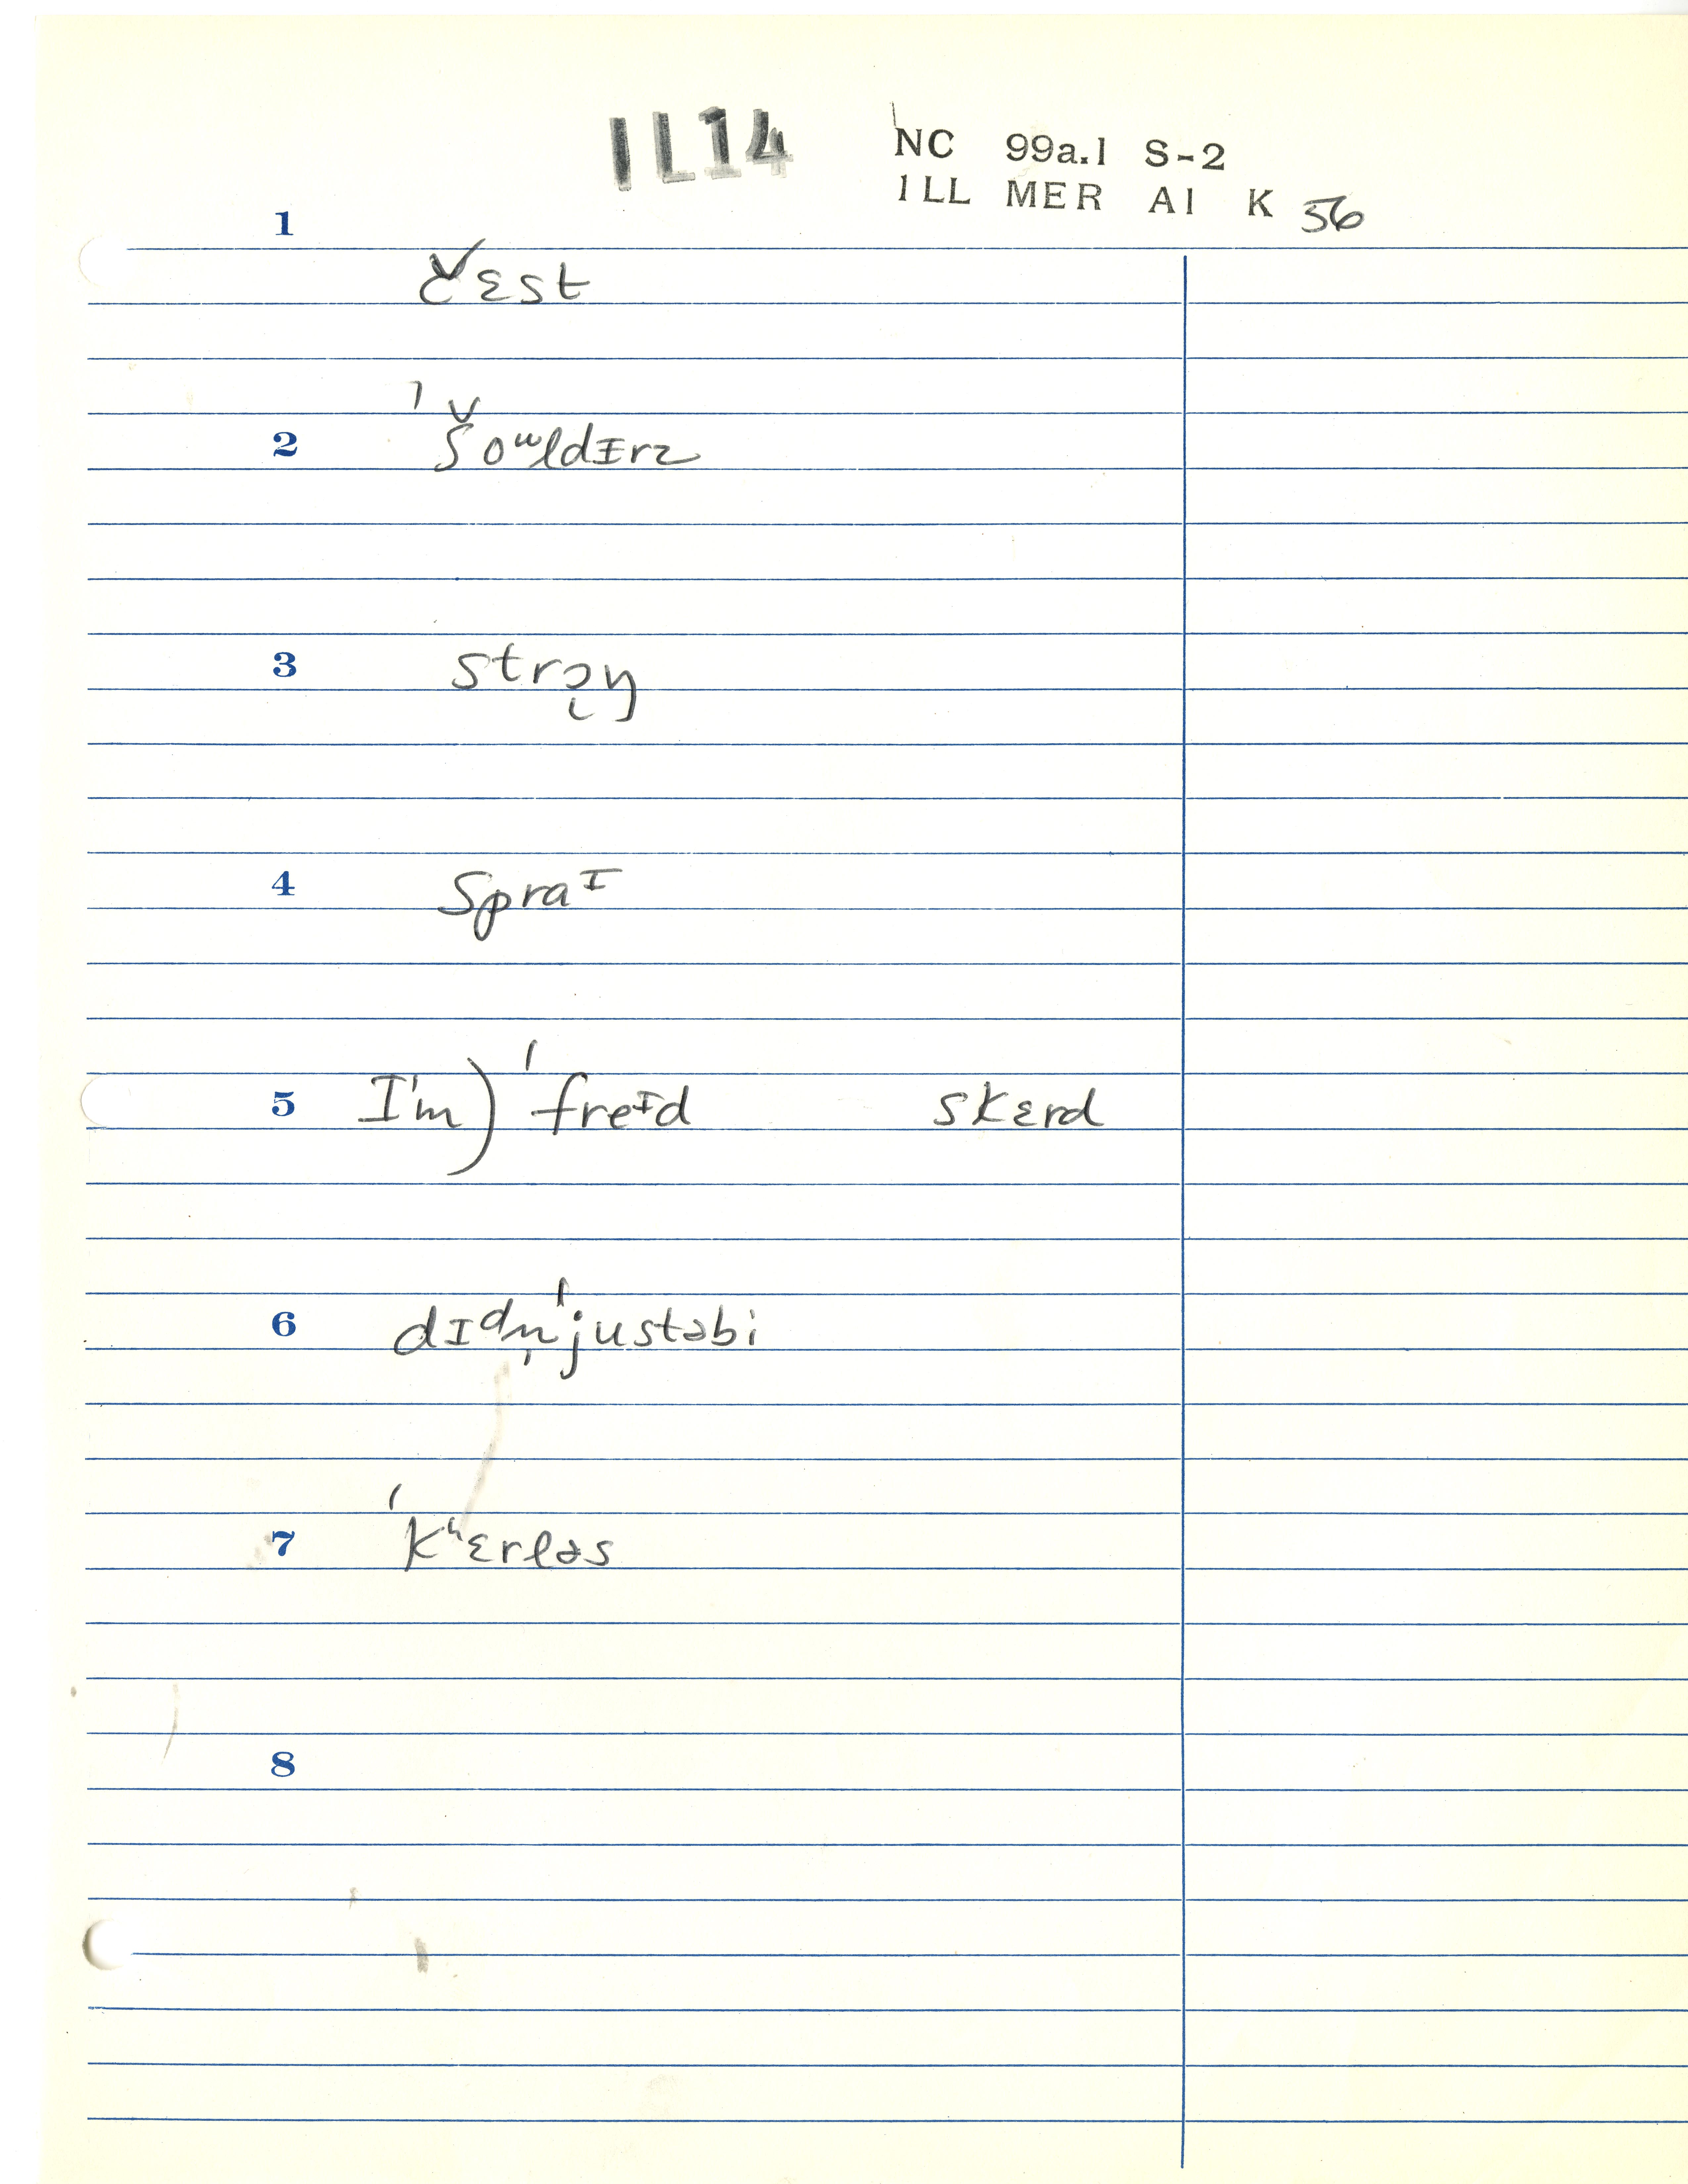 IL14
NC 99a.1 S-2
ILL MER A1 K 56
1
č ɛst
2 ˈšoᵘldɪrz
3 strɔ̜ŋ
4 spraᴵ
5 I'm) ˈfreᴵd skɛrd
6 dɪᵈn̩ˈjustəbi
7 ˈkʰɛrləs
8